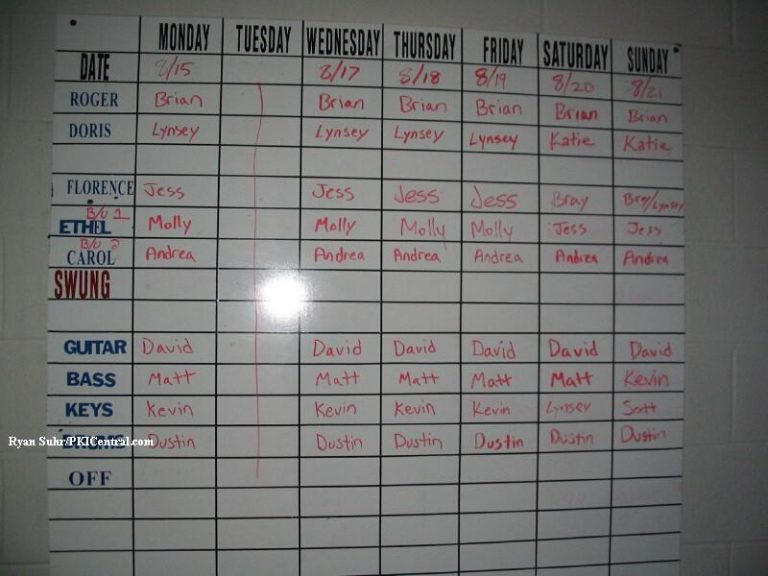 MONDAY TUESDAY WEDNESDAY THURSDAY FRIDAY SATURDAY SUNDAY
DATE 8/15 8/17 8/18 8/19 8/20 8/21
ROGER Brian Brian Brian Brian Brian Brian
DORIS Lynsey Lynsey Lynsey Lynsey Katie Katie
FLORENCE Jess Jess Jess Jess Bray Bray/Lynsey
B/U 1
ETHEL Molly Molly Molly Molly Jess Jess
B/U 2
CAROL Andrea Andrea Andrea Andrea Andrea Andrea
SWUNG
GUITAR David David David David David David
BASS Matt Matt Matt Matt Matt Kevin
KEYS Kevin Kevin Kevin Kevin Lynsey Scott
Ryan Suhr/PKICentral.com
DRUMS Dustin Dustin Dustin Dustin Dustin Dustin
OFF